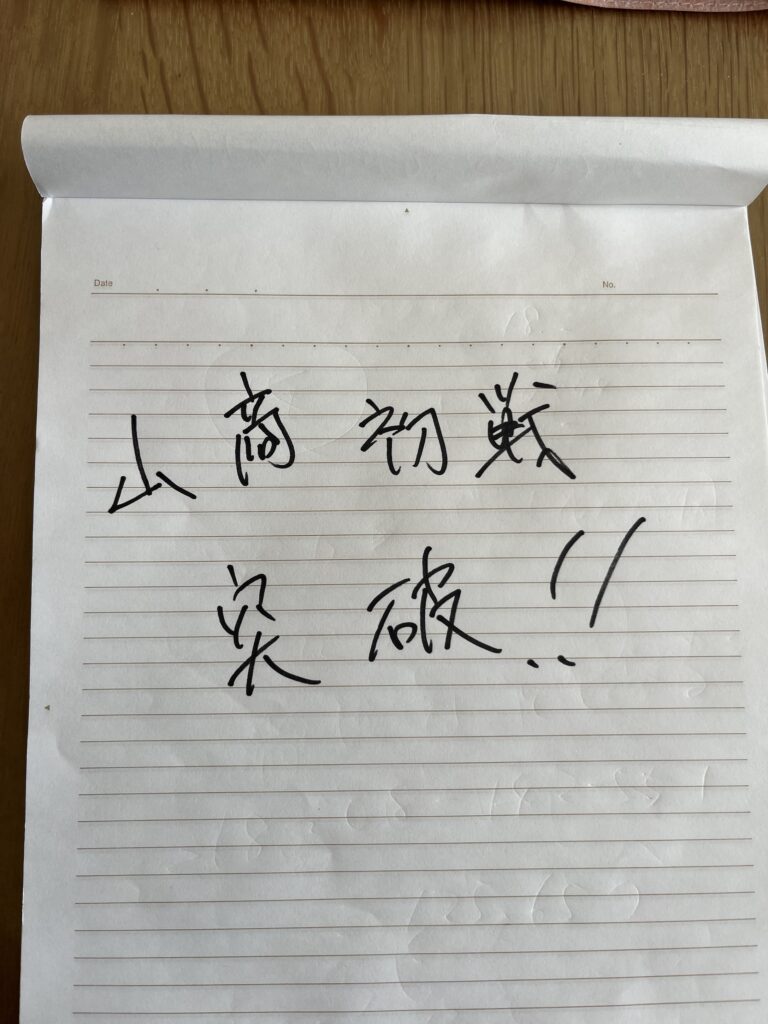 Date No.
山商初戦
突破!!